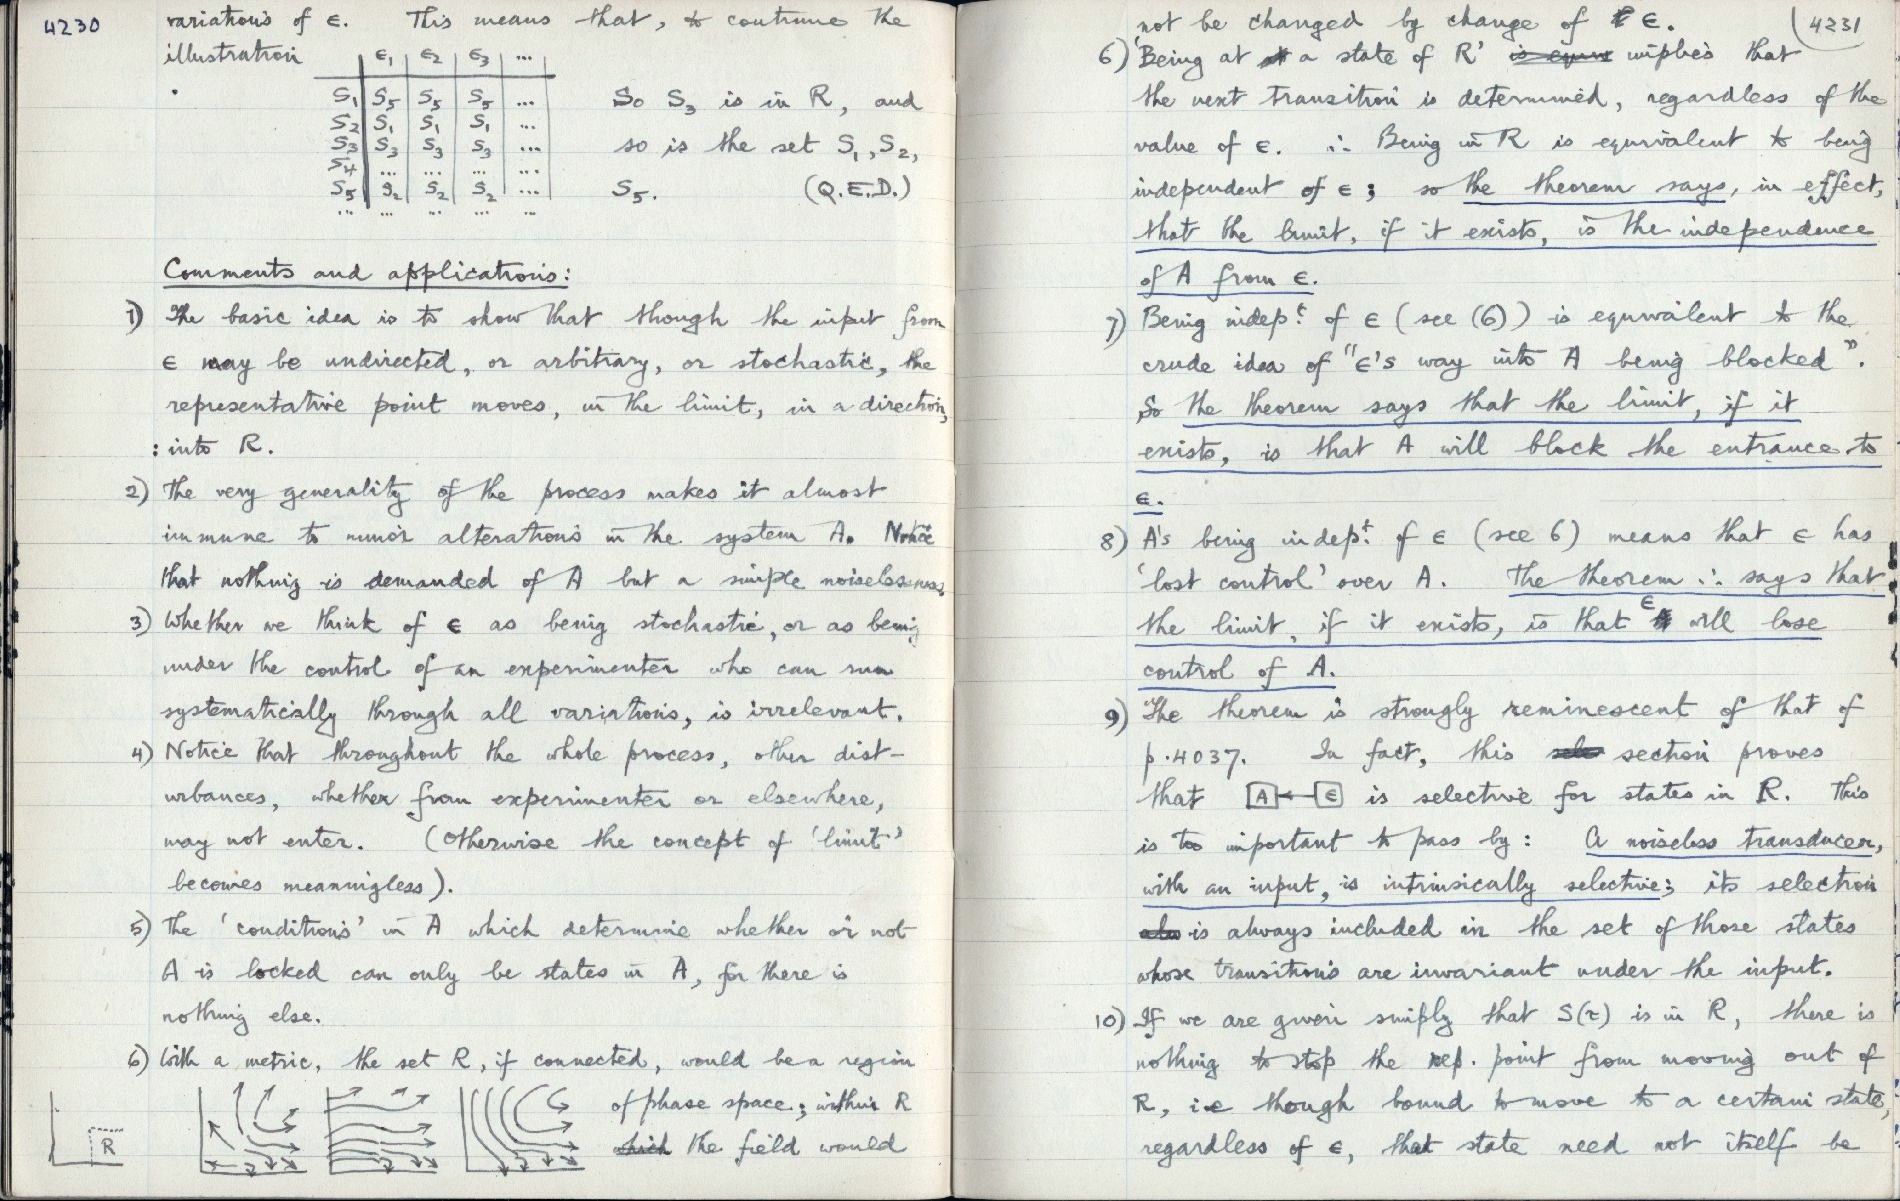 4230
variations of ε. This means that, to continue the
illustration
ε₁ ε₂ ε₃ ...
S₁ S₅ S₅ S₅ ...
S₂ S₁ S₁ S₁ ...
S₃ S₃ S₃ S₃ ...
S₄ ... ... ... ...
S₅ S₂ S₂ S₂ ...
... ... ... ... ...
So S₃ is in R, and
so is the set S₁, S₂,
S₅. (Q.E.D.)
Comments and applications:
1) The basic idea is to show that though the input from
ε may be undirected, or arbitrary, or stochastic, the
representative point moves, in the limit, in a direction,
: into R.
2) The very generality of the process makes it almost
immune to minor alterations in the system A. Notice
that nothing is demanded of A but a simple noiselessness.
3) Whether we think of ε as being stochastic, or as being
under the control of an experimenter who can run
systematically through all variations, is irrelevant.
4) Notice that throughout the whole process, other dist-
urbances, whether from experimenter or elsewhere,
may not enter. (Otherwise the concept of 'limit'
becomes meaningless).
5) The 'conditions' in A which determine whether or not
A is locked can only be states in A, for there is
nothing else.
6) With a metric, the set R, if connected, would be a region
of phase space; within R
which the field would
R
4231
not be changed by change of ε.
6) 'Being at a state of R' is equiv implies that
the next transition is determined, regardless of the
value of ε. ∴ Being in R is equivalent to being
independent of ε; so the theorem says, in effect,
that the limit, if it exists, is the independence
of A from ε.
7) Being indepᵗ. of ε (see (6)) is equivalent to the
crude idea of "ε's way into A being blocked".
So the theorem says that the limit, if it
exists, is that A will block the entrance to
ε.
8) A's being indepᵗ. of ε (see 6) means that ε has
'lost control' over A. The theorem ∴ says that
the limit, if it exists, is that ε will lose
control of A.
9) The theorem is strongly reminescent of that of
p.4037. In fact, this section proves
that A ← ε is selective for states in R. This
is too important to pass by: A noiseless transducer,
with an input, is intrinsically selective; its selection
is always included in the set of those states
whose transitions are invariant under the input.
10) If we are given simply that S(τ) is in R, there is
nothing to stop the rep. point from moving out of
R, i.e though bound to move to a certain state,
regardless of ε, that state need not itself be